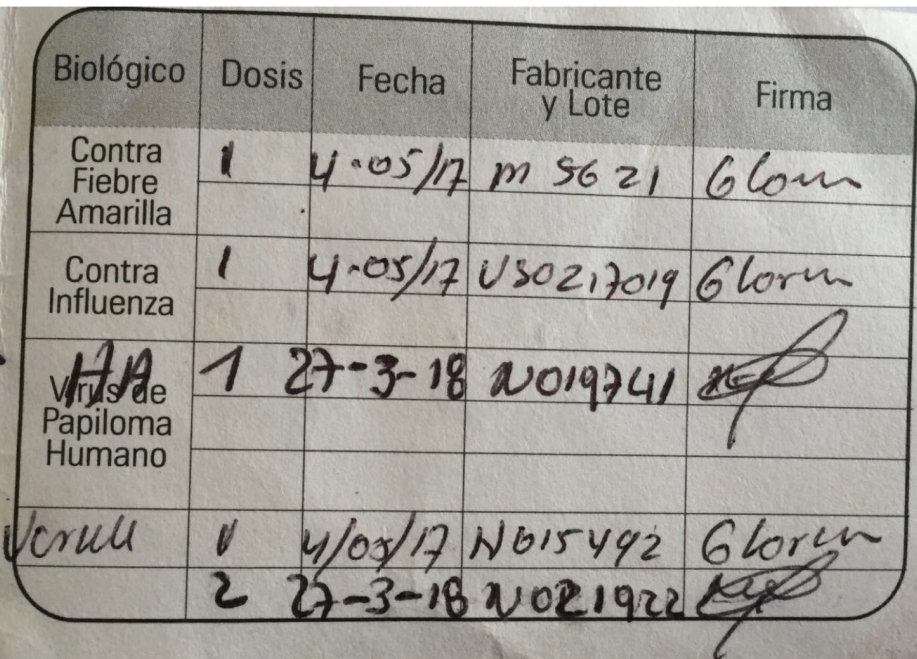 Biológico Dosis Fecha Fabricante y Lote Firma
Contra Fiebre Amarilla 1 4-05/17 M 5621
Contra Influenza 1 4-05/17 US0217019 Gloria
HA Virus de Papiloma Humano 1 27-3-18 N019741
1 4/05/17 N015492 Gloria
2 27-3-18 N021922